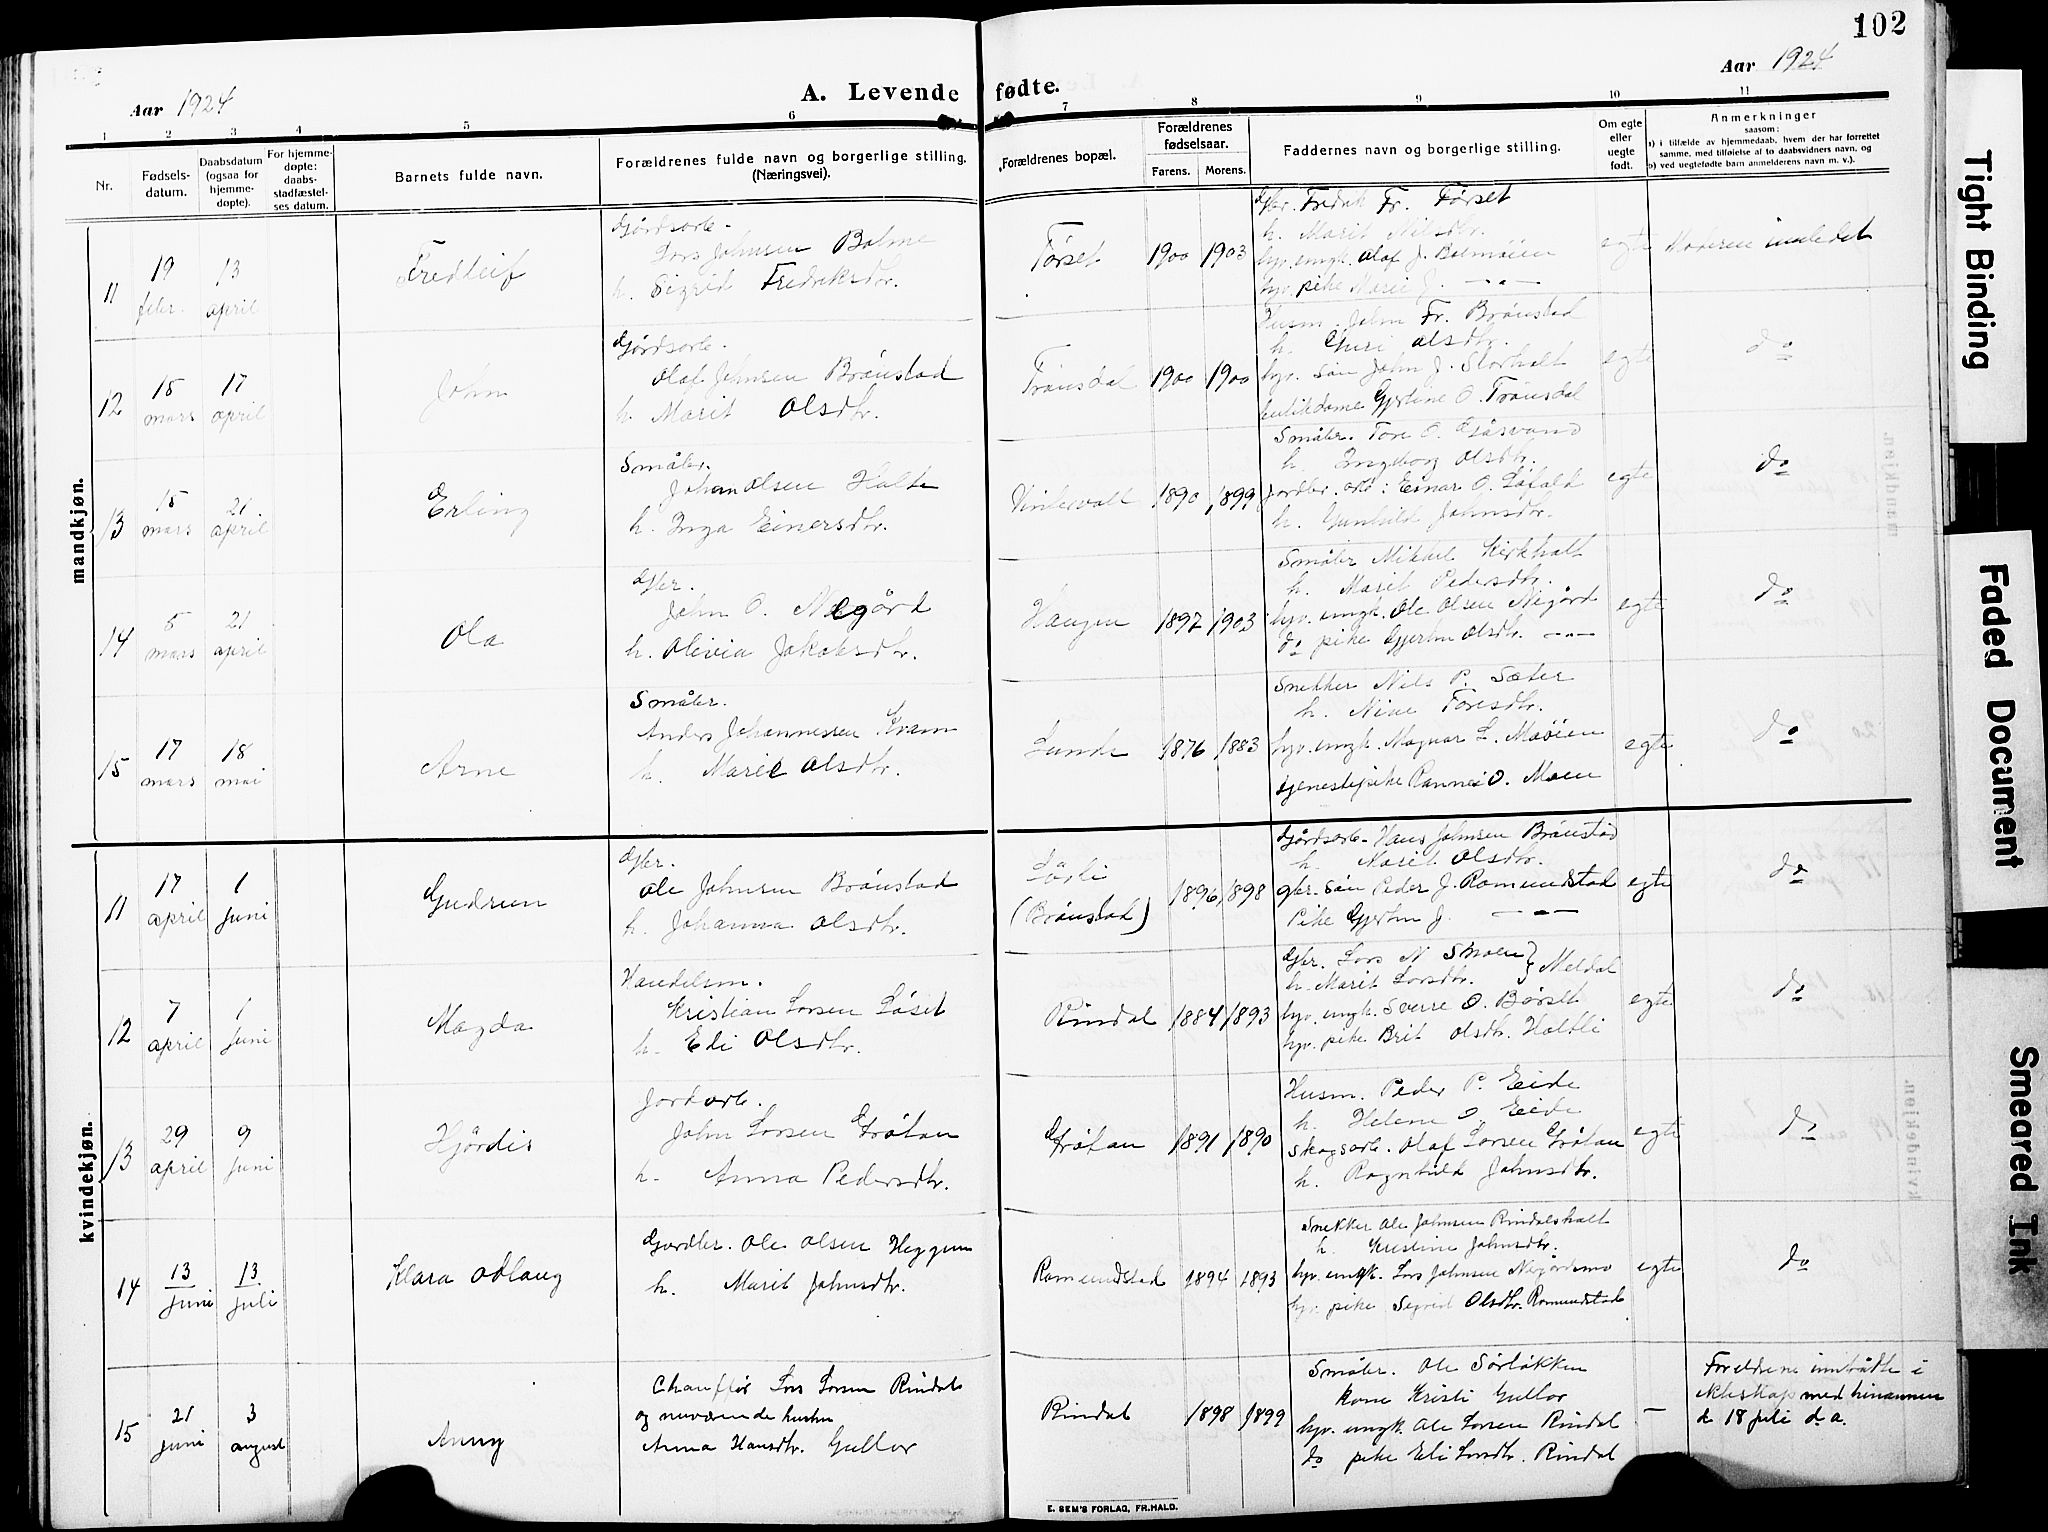 102
Aar 1924
A. Levende fødte.
Aar 1924
1 2 3 4 5 6 7 8 9 10 11
Nr.
Fødsels-
datum.
Daabsdatum
(ogsaa for
hjemme-
døpte).
For hjemme-
døpte:
daabs-
stadfæstel-
ses datum.
Barnets fulde navn.
Forældrenes fulde navn og borgerlige stilling.
(Næringsvei).
Forældrenes bopæl.
Forældrenes
fødselsaar.
Farens. Morens.
Faddernes navn og borgerlige stilling.
Om egte
eller
uegte
født.
Anmerkninger
saasom:
a) i tilfælde av hjemmedaab, hvem der har forrettet
samme, med tilføielse af to daabsvidners navn, og
b) ved uegtefødte barn anmelderens navn m. v.).
mandkjøn.
11
19
febr.
13
april
Fredleif
Gårdsarb.
Lars Johnsen Bolme
h. Sigrid Fredriksdtr.
Tørset
1900 1903
Gbr. Fredrik Fr. Tørset
h. Marit Nilsdtr.
hjv. ungk. Olaf J. Bolmøien
hjv. pike Marie J. -„-
egte
Moderen innledet
12
18
mars
17
april
John
Gårdsarb.
Olaf Johnsen Brønstad
h. Marit Olsdtr.
Trønsdal
1900 1900
Husm. John Fr. Brønstad
h. Guri Olsdtr.
hjv. søn John J. Storholt
butikdame Gjertine O. Trønsdal
egte
do
13
15
mars
21
april
Erling
Småbr.
Johan Olsen Holte
h. Inga Einersdtr.
Vintervolt
1890 1899
Småbr. Tore O. Gåsvand
h. Ingeborg Olsdtr.
jordbr. arb: Einar O. Løfald
h. Gunhild Johnsdtr.
egte
do
14
5
mars
21
april
Ola
Gbr.
John O. Negård
h. Olivia Jakobsdtr.
Haugen
1897 1903
Småbr Mikael Kirkholt
h. Marit Pedersdtr.
hjv. ungk. Ole Olsen Negård
do pike Gjertru Olsdtr. -„-
egte
do
15
17
mars
18
mai
Arne
Småbr.
Anders Johannessen Kvam
h. Marie Olsdtr.
Lunde
1876 1883
Snekker Nils P. Sæter
h. Nine Toresdtr.
hjv. ungk. Magnar L. Moøien
tjenestepike Rannei O. Moen
egte
do
kvindekjøn.
11
17
april
1
juni
Gudrun
Gbr.
Ole Johnsen Brønstad
h. Johanna Olsdtr.
Lårli
(Brønstad)
1896 1898
Gårdsarb. Hans Johnsen Brønstad
h. Marit Olsdtr.
gbr. søn Peder J. Romundstad
Pike Gjertru J. -„-
egte
do
12
7
april
1
juni
Magda
Handelsm.
Kristian Larsen Løset
h. Eli Olsdtr.
Rindal
1884 1893
Gbr. Lars N Smoen } Meldal
h. Marit Larsdtr.
hjv. ungk. Sverre O. Børset
hjv. pike Brit Olsdtr. Holtli
egte
do
13
29
april
9
juni
Hjørdis
Jordarb.
John Larsen Grøtan
h. Anna Pedersdtr.
Grøtan
1891 1890
Husm. Peder P. Eide
h. Helene O Eide
skogsarb. Olaf Larsen Grøtan
h. Ragnhild Johnsdtr.
egte
do
14
13
juni
13
juli
Klara Odlaug
Gardbr. Ole Olsen Heggem
h. Marit Johnsdtr.
Romundstad
1894 1893
Snekker Ole Johnsen Rindalsholt
h. Kristine Johnsdtr.
hjv. ungk. Lars Johnsen Negårdsmo
hjv. pike Sigrid Olsdtr. Romundstad
egte
do
15
21
juni
3
august
Anny
Chauffør Lars Larsen Rindal
og nuværende hustru
Anna Hansdtr. Gullor
Rindal
1898 1899
Småbr. Ole Sørløkken
kone Kristi Gullor
hjv. ungk. Ole Larsen Rindal
do pike Eli Larsdtr. Rindal
—
Foreldrene inntrådte i
ekteskap med hinannen
d. 18 juli d.a.
E. SEM'S FORLAG, FR.HALD.
Tight Binding
Faded Document
Smeared Ink